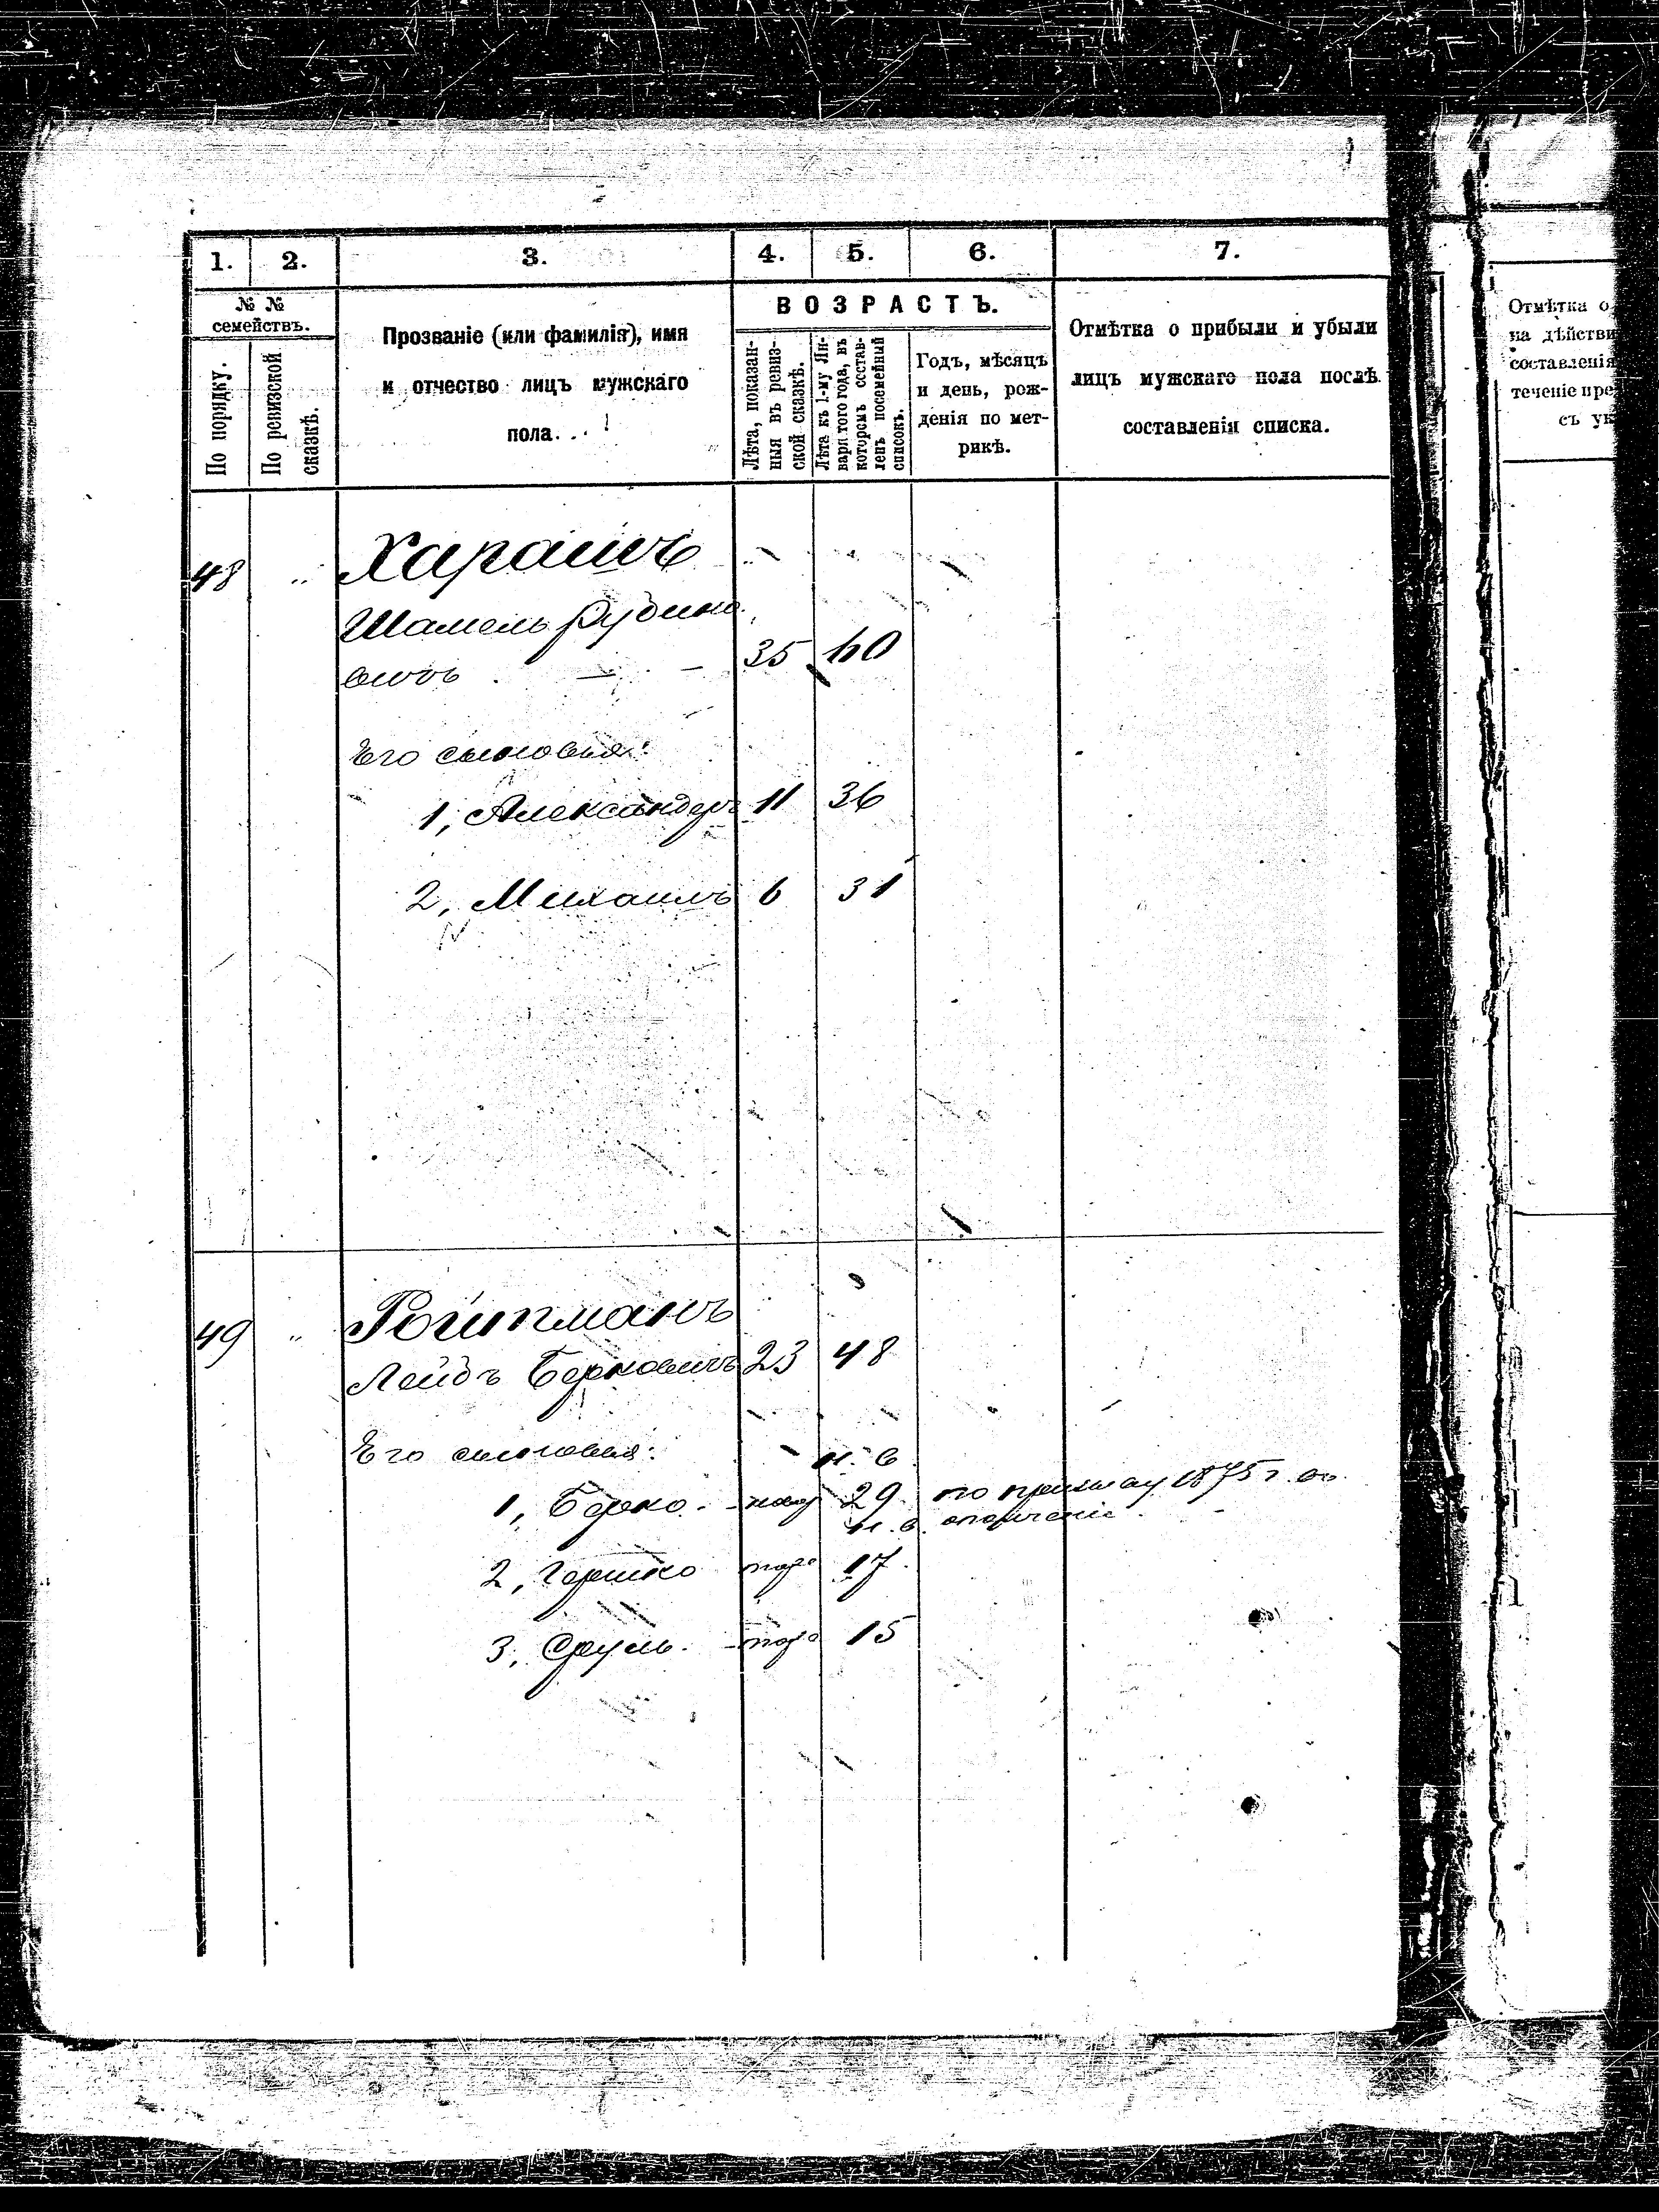 1. 2. 3. 4. 5. 6. 7.
№ № семействъ.
По порядку.
По ревизской сказкѣ.
Прозваніе (или фамилія), имя
и отчество лицъ мужскаго
пола.
ВОЗРАСТЪ.
Лѣта, показан-
ныя въ ревиз-
ской сказкѣ.
Лѣта къ 1-му Ян-
варя того года, въ
которомъ состав-
ленъ посемейный
списокъ.
Годъ, мѣсяцъ
и день, рож-
денія по мет-
рикѣ.
Отмѣтка о прибыли и убыли
лицъ мужскаго пола послѣ
составленія списка.
Отмѣтка о
на дѣйстви
составленія
теченіе пре
съ ук
48 " Харашъ
Шамель Рубино
вичъ 35 60
Его сыновья:
1, Александеръ 11 36
2, Михаилъ 6 31
49 " Ройтманъ
Лейбъ Берковичъ 23 48
Его сыновья: н. в.
1, Берко 29 по призыву 1875 г. въ
н. в. ополченіе
2, Гершко 17
3, Сруль 15